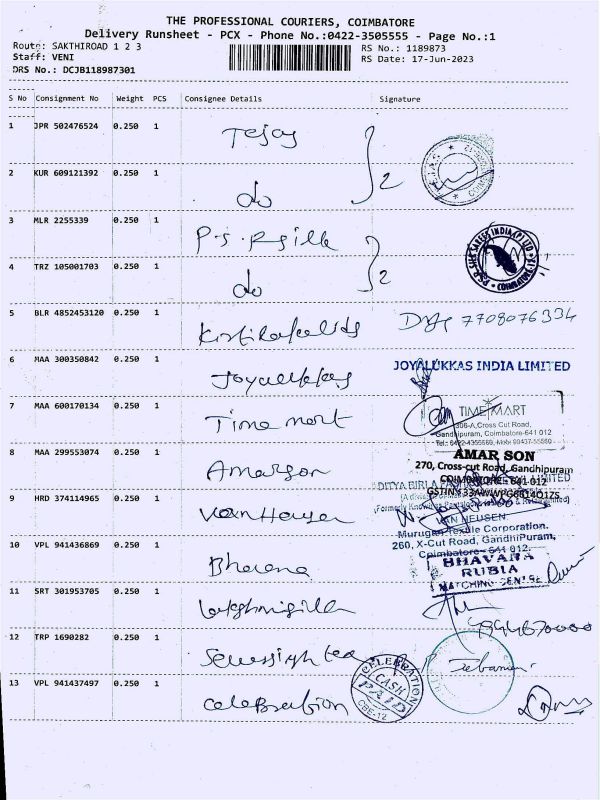 THE PROFESSIONAL COURIERS, COIMBATORE
Delivery Runsheet - PCX - Phone No.:0422-3505555 - Page No.:1
Route: SAKTHIROAD 1 2 3 RS No.: 1189873
Staff: VENI RS Date: 17-Jun-2023
DRS No.: DCJB118987301
S No Consignment No Weight PCS Consignee Details Signature
1 JPR 502476524 0.250 1 Tejas
2 KUR 609121392 0.250 1 do 2
3 MLR 2255339 0.250 1 P.S.R silk
4 TRZ 105001703 0.250 1 do 2
5 BLR 4852453120 0.250 1 7708076334
6 MAA 300350842 0.250 1 Joyalukkas
JOYALUKKAS INDIA LIMITED
7 MAA 600170134 0.250 1 Time mart
TIME MART
306-A, Cross Cut Road,
Gandhipuram, Coimbatore-641 012
8 MAA 299553074 0.250 1 Amarson
AMAR SON
270, Cross-cut Road, Gandhipuram
COIMBATORE - 641 012
9 HRD 374114965 0.250 1 van Heusen
VAN HEUSEN
Murugan Textile Corporation.
260, X-Cut Road, GandhiPuram,
Coimbatore- 641 012.
10 VPL 941436869 0.250 1 Bhavana
BHAVANA
RUBIA
MATCHING CENTRE
11 SRT 301953705 0.250 1
12 TRP 1690282 0.250 1
13 VPL 941437497 0.250 1 celebration
CELEBRATION
CASH
PAID
CBE-12